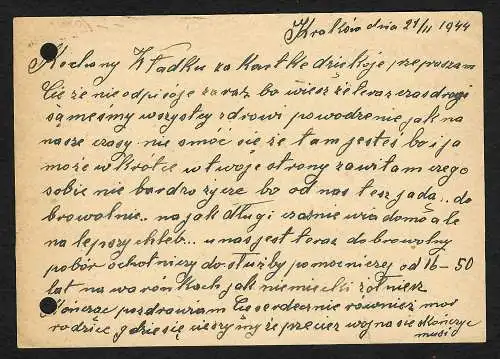 Kraków dnia 21/II 1944
Kochany Władku za kartkę dziękuje, przepraszam
Cię że nie odpisoje zaraz bo wiesz że teraz czas drogi
są meśmy wszyscy zdrowi powodzenie jak na
nasze czasy nie smóć się że tam jesteś bo i ja
może wkrótce w twoje strony zawitam czego
sobie nie bardzo życze bo od nas tesz jadą.. do
browolnie.. na jak długi czas nie wiadomo ale
na lejpszy chleb... u nas jest teraz dobrowolny
pobór ochotniczy do służby pomocniczej od 16-50
lat na waronkach jak niemiecki żołniesz
Kończąc pozdrawiam Cię serdecznie również moi
rodzice, gdzie się
że przecież wojna się skończyć
musi